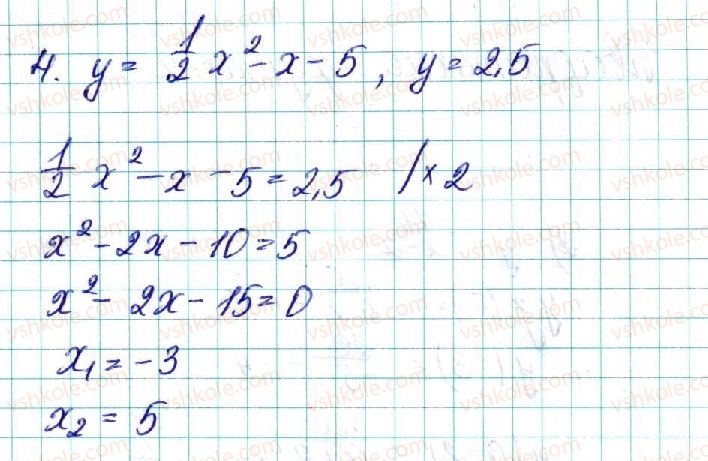 4. y = 1/2 x² - x - 5, y = 2,5
1/2 x² - x - 5 = 2,5 /× 2
x² - 2x - 10 = 5
x² - 2x - 15 = 0
x₁ = -3
x₂ = 5